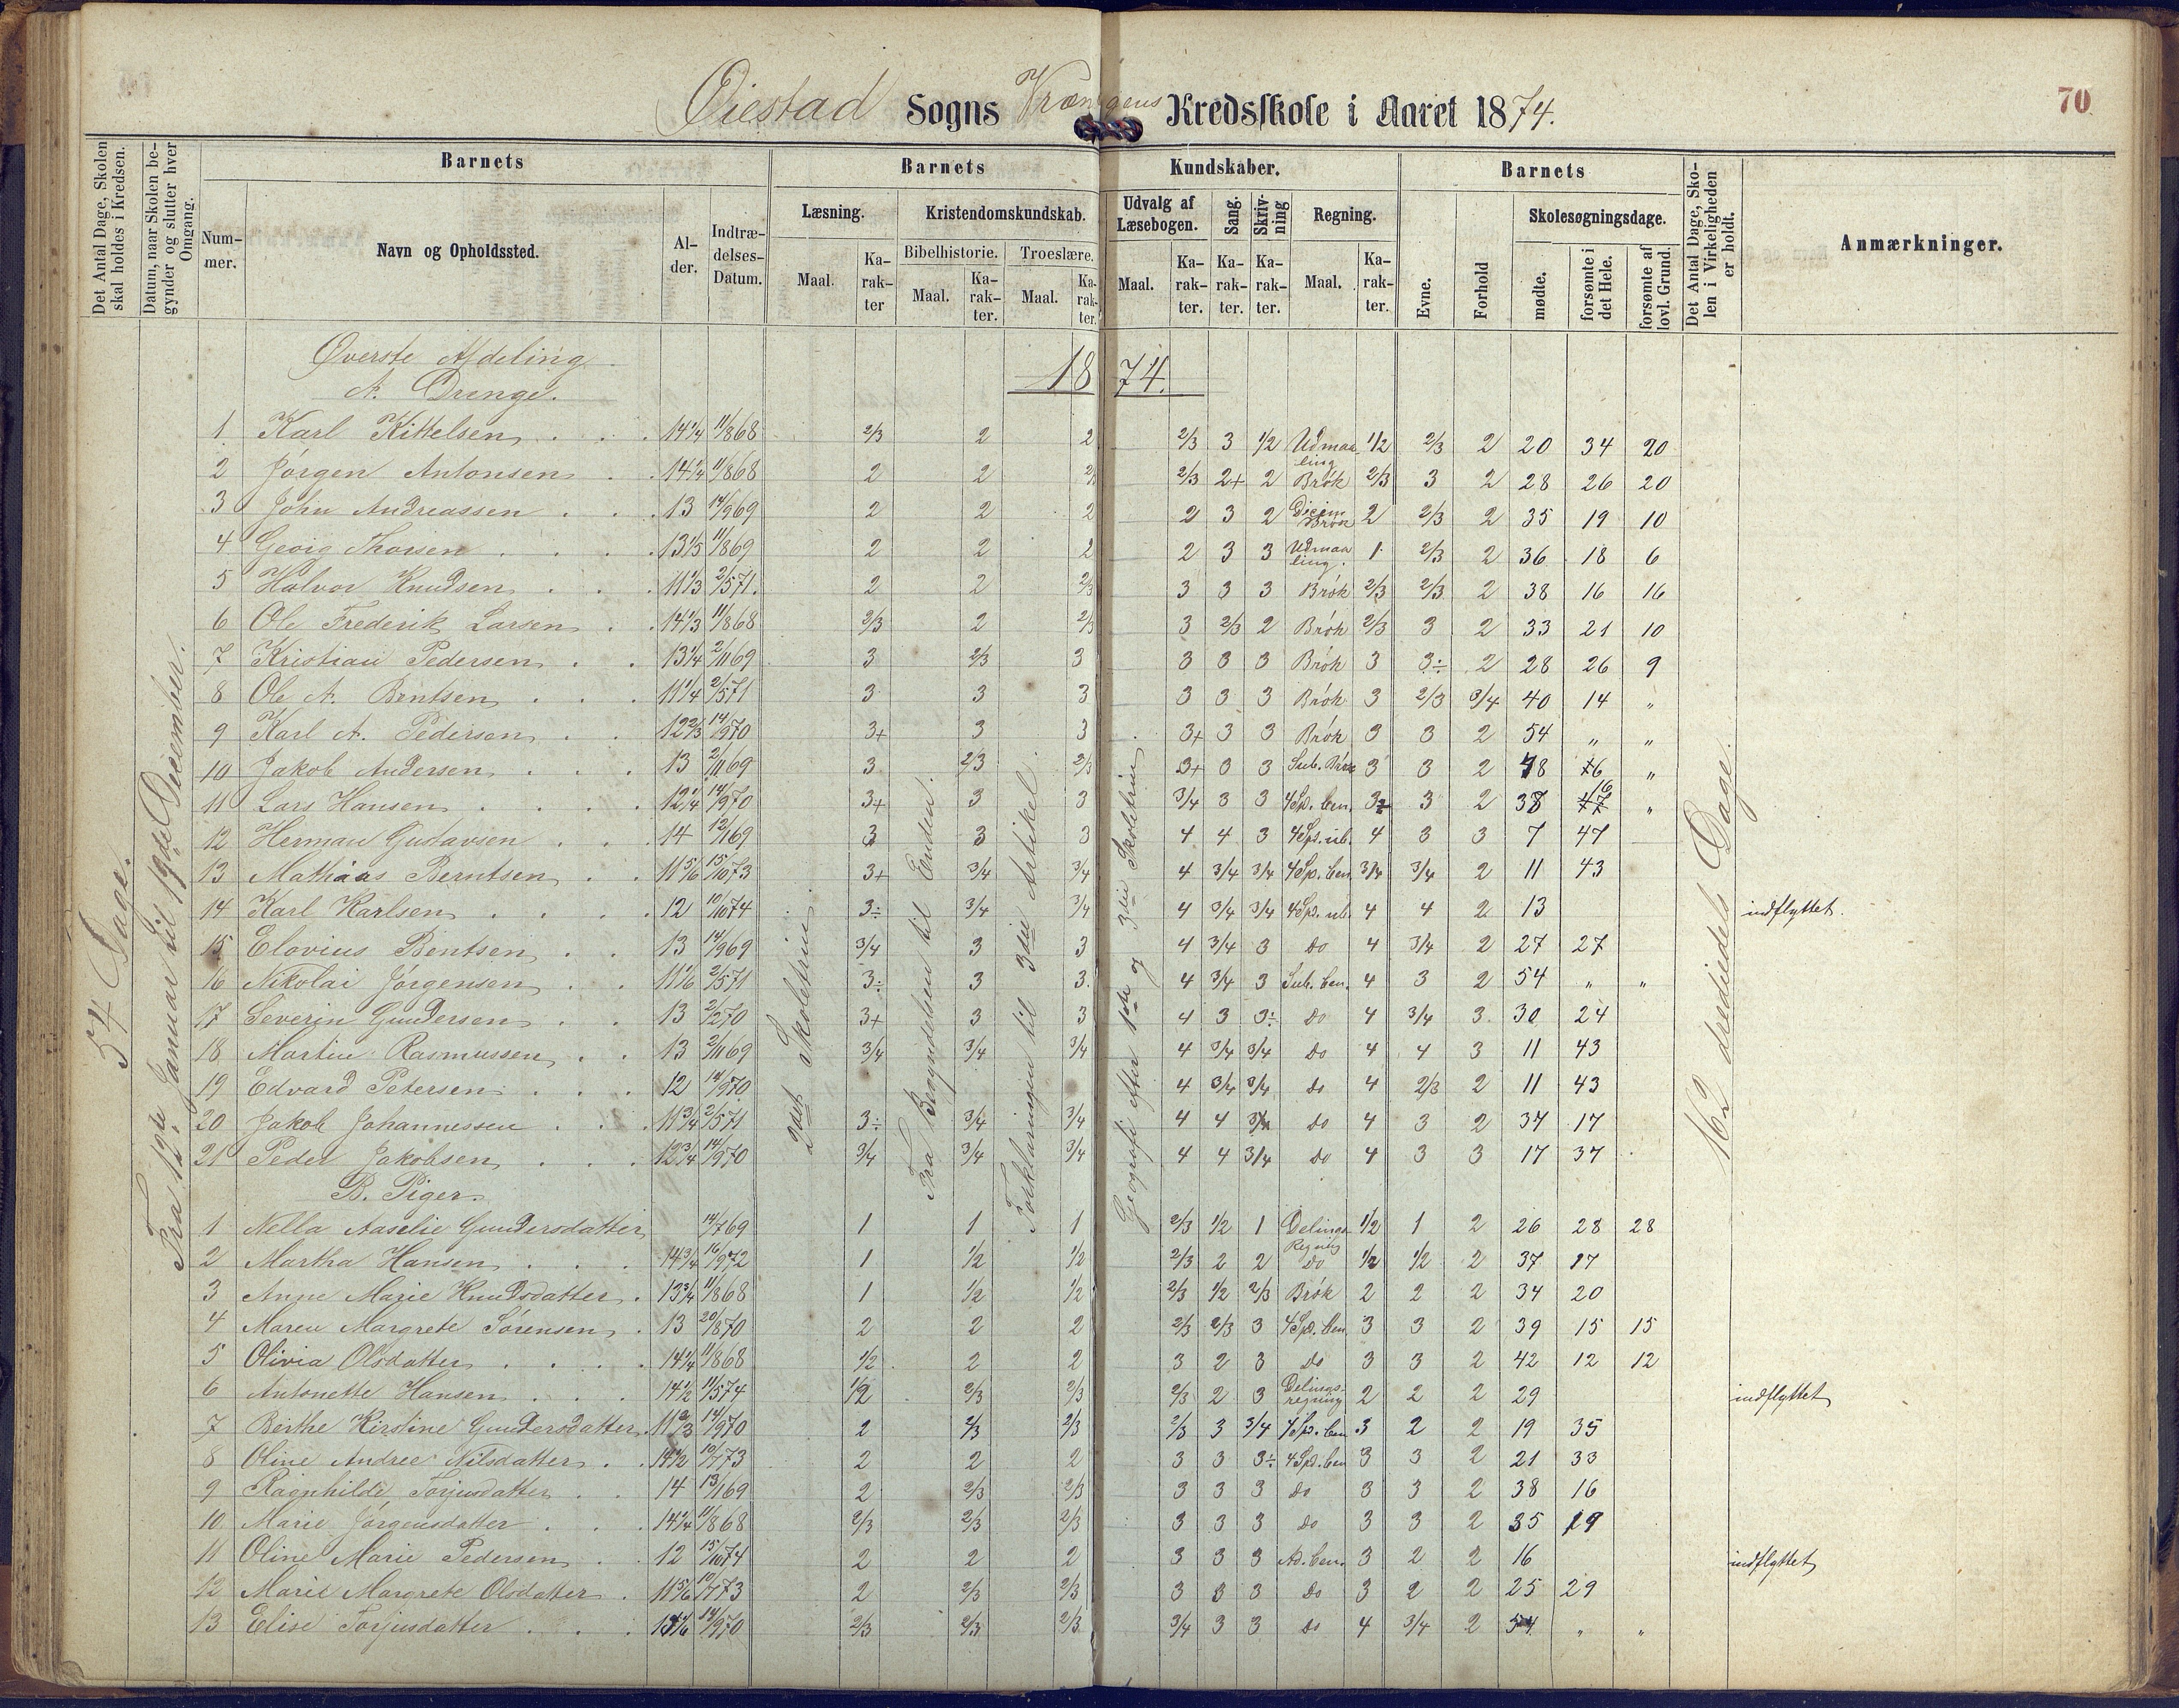 Øiestad Sogns Vrængens Kredsskole i Aaret 1874.
70
Det Antal Dage, Skolen skal holdes i Kredsen.
Datum, naar Skolen begynder og slutter hver Omgang.
Barnets
Nummer.
Navn og Opholdssted.
Alder.
Indtrædelses-Datum.
Barnets Kundskaber.
Læsning.
Maal.
Karakter
Kristendomskundskab.
Bibelhistorie.
Maal.
Karakter.
Troeslære.
Maal.
Karakter.
Udvalg af Læsebogen.
Maal.
Karakter.
Sang.
Karakter.
Skrivning
Karakter.
Regning.
Maal.
Karakter.
Barnets
Evne.
Forhold
Skolesøgningsdage.
mødte.
forsømte i det Hele.
forsømte af lovl. Grund.
Det Antal Dage, Skolen i Virkeligheden er holdt.
Anmærkninger.
54 Dage.
Fra 12te Januar til 19de December.
2det Skoletrin.
Fra Begyndelsen til Enden.
Forklaringen til 3die Artikel.
Geografi efter 1ste og 3die Skoletrin
162 tredjedels Dage.
Øverste Afdeling
A. Drenge.
1874.
1 Karl Kittelsen 14 1/4 11/8 68 2/3 2 2 2/3 3 1/2 Udmaaling 1/2 2/3 2 20 34 20
2 Jörgen Antonsen 14 1/4 11/8 68 2 2 2/3 2+ 2 Brök 2/3 3 2 28 26 20
3 John Andreassen 13 14/9 69 2 2 2 2 3 2 Decim Brök 2 2/3 2 35 19 10
4 Georg Thorsen 13 1/5 11/8 69 2 2 2 2 3 3 Udmaaling. 1 2/3 2 36 18 6
5 Halvor Knudsen 11 1/3 2/5 71. 2 2 2/3 3 3 3 Brök 2/3 2/3 2 38 16 16
6 Ole Frederik Larsen 14 1/3 11/8 68 2/3 2 2/3 3 2/3 2 Brök 2/3 3 2 33 21 10
7 Kristian Pedersen 13 1/4 2/11 69 3 2/3 3 3 3 3 Brök 3 3÷ 2 28 26 9
8 Ole A. Berntsen 11 1/4 2/5 71 3 3 3 3 3 3 Brök 3 2/3 3/4 40 14 "
9 Karl A. Pedersen 12 2/3 14/9 70 3+ 3 3 3+ 3 3 Brök 3 3 2 54 " "
10 Jakob Andersen 13 2/11 69 3 2/3 2/3 3+ 3 3 Sub. Brök 3 3 2 48 6 "
11 Lars Hansen 12 1/4 14/9 70 3+ 3 3 3/4 3 3 4 Sp. ben. 3 3 2 38 16 "
12 Herman Gustavsen 14 12/1 69 3 3 3 4 4 3 4 Sp. ub. 4 3 3 7 47
13 Mathias Berntsen 11 5/6 15/10 73 3+ 3/4 3/4 4 3/4 3/4 4 Sp. ben 3/4 3/4 2 11 43
14 Karl Karlsen 12 10/10 74 3÷ 3/4 3/4 4 3/4 3/4 4 Sp. ub. 4 4 2 13 indflyttet.
15 Elovius Bentsen 13 14/9 69 3/4 3 3 4 3/4 3 Do 4 3/4 2 27 27
16 Nikolai Jörgensen 11 1/6 2/5 71 3÷ 3 3. 4 3/4 3 Sub. ben. 4 3 2 54 " "
17 Severin Gundersen 13 2/12 70 3+ 3 3 4 3 3÷ Do 4 3/4 3 30 24
18 Martin Rasmussen 13 2/11 69 3/4 3/4 3/4 4 3/4 3/4 Do 4 4 3 11 43
19 Edvard Petersen 12 14/9 70 4 3/4 3/4 Do 4 2/3 2 11 43
20 Jakob Johannessen 11 3/4 2/5 71 3÷ 3/4 3/4 4 4 3/4 Do 4 3 2 37 17
21 Peder Jakobsen 12 3/4 14/9 70 3/4 3/4 3/4 4 4 3/4 Do 4 3 3 17 37
B. Piger.
1 Nella Aaselie Gundersdatter 14/7 69 1 1 1 2/3 1/2 1 Delings Regning 1/2 1 2 26 28 28
2 Martha Hansen 14 3/4 16/9 72 1 1/2 1/2 2/3 2 2 Do 1/2 1/2 2 37 17
3 Anne Marie Knudsdatter 13 3/4 11/8 68 1 1/2 1/2 2/3 1/2 2/3 Brök 2 2 2 34 20
4 Maren Margrete Sörensen 13 20/8 70 2 2 2 2/3 2/3 3 4 Sp. ben 3 3 2 39 15 15
5 Olivia Olsdatter 14 1/4 11/8 68 1/2 2 2 3 2 3 Do 3 3 2 42 12 12
6 Antonette Hansen 14 1/2 11/5 74 1/2 2/3 2/3 2/3 2 3 Delingsregning 2 2 2 29 indflyttet
7 Berthe Kirstine Gundersdatter 11 2/3 14/9 70 2 2/3 2/3 2/3 3 3/4 4 Sp. ben 3 2 2 19 35
8 Oline Andree Nilsdatter 14 1/2 10/7 73 2 2 2 3 3 3÷ 4 Sp. ben 3 3 2 21 33
9 Ragnhilde Torjusdatter 14 13/1 69 2 2/3 2/3 3 3 3 Do 3 3 2 38 16
10 Marie Jörgensdatter 14 1/4 11/8 68 2/3 2/3 2/3 3 3 3 Do 3 3 2 35 19
11 Oline Marie Pedersen 12 15/10 74 2 2 2 3 3 3 Ad. ben. 3 2 2 16 indflyttet
12 Marie Margrete Olsdatter 11 5/6 10/7 73 2 2/3 2/3 3 3 3 Do 3 2 2 25 29
13 Elise Torjusdatter 14/9 70 2/3 2/3 2/3 3/4 3 3 Do 4 3/4 2 54 " "